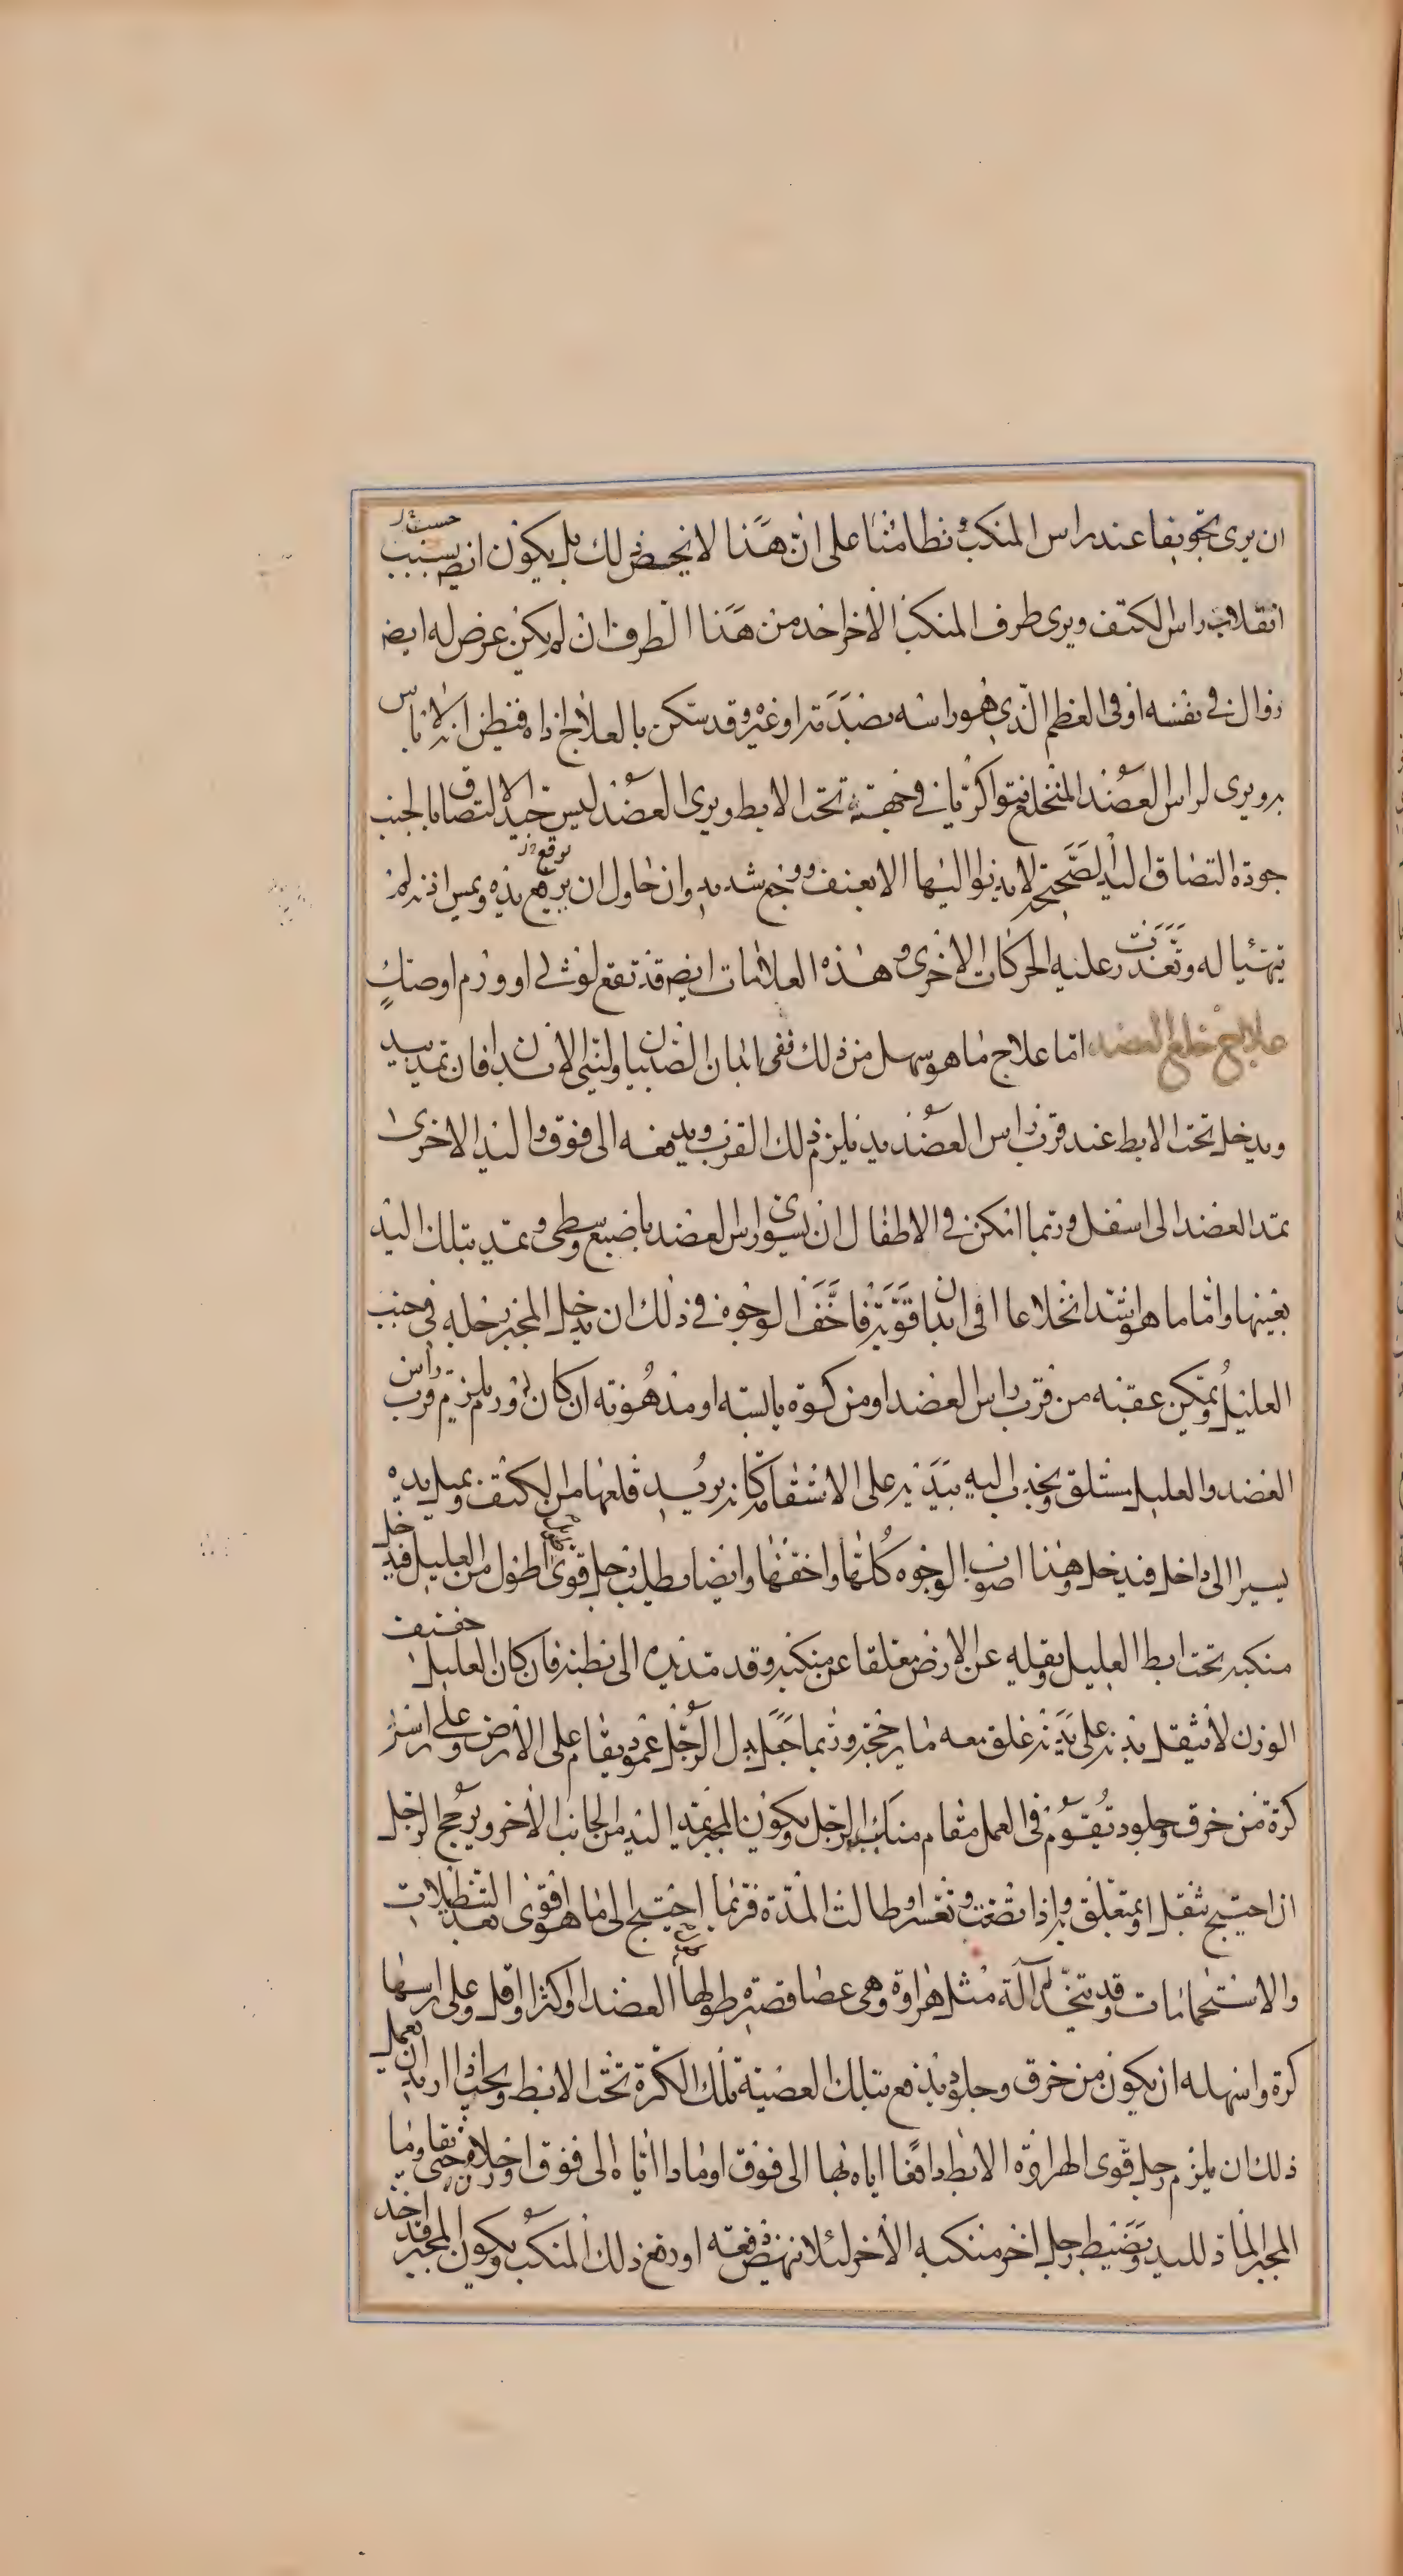 ان يرى تجويفا عند راس المنكب وتطامنا على ان هذا لا يخص ذلك بل يكون ايضا بسبب
انقلاب راس الكتف ويرى طرف المنكب الاخر احد من هذا الطرف ان لم يكن عرض له ايضا
زوال في نفسه او في العظم الذي هو راسه بصدمة او غيره وقد سكن بالعلاج اذاه فيظن انه لا باس
به ويرى لراس العضد المنخلع نتوا كريا في جهته تحت الابط ويرى العضد ليس جيد الالتصاق بالجنب
جودة التصاق اليد الصحيحة لا يدنوا اليها الا بعنف ووجع شديد وان حاول ان يرفع يده ويمس اذنه لم
يتهيا له وتعذرت عليه الحركات الاخرى وهذه العلامات ايضا قد تقع لوثي او ورم او صك
علاج خلع العضد اما علاج ما هو سهل من ذلك ففي ابدان الصبيان ولينى الابدان فان تمد بيد
ويدخل تحت الابط عند قرب راس العضد يد يلزم ذلك القرب ويدفعه الى فوق واليد الاخرى
تمد العضد الى اسفل وربما امكن في الاطفال ان يسوى راس العضد باصبع وسطى وتمد بتلك اليد
بعينها واما ما هو اشد انخلاعا او في ابدان قوية فاخف الوجوه في ذلك ان يدخل المجبر رجله في جنب
العليل ويمكن عقبه من قرب راس العضد او من كرة يابسة او مدهونة ان كان ورم يلزم قرب راس
العضد والعليل مستلق ويجذب اليه بيديه على الاستقامة كانه يريد قلعها من الكتف ويميل يده
يسيرا الى داخل فيدخل وهذا اصوب الوجوه كلها واخفها وايضا يطلب رجل قوى اطول من العليل فيدخل
منكبه تحت ابط العليل ويقله عن الارض معلقا عن منكبه وقد مد يده الى بطنه فان كان العليل خفيف
الوزن لا يثقل بدنه على يديه علق معه ما يرجحه وربما جعل بدل الرجل عمود يقام على الارض وعلى راسه
كرة من خرق وجلود تقوم في العمل مقام منكب الرجل ويكون المجبر يمد اليد من الجانب الاخر ويرجح الرجل
ان احتيج بثقل او بمتعلق به واذا صعبت وتعسر وطالت المدة فربما احتيج الى ما هو اقوى بعد التنطيلات
والاستحمامات وقد يتخذ آلة مثل هراوة وهي عصا قصيرة طولها العضد او اكثر او اقل وعلى راسها
كرة واسهله ان يكون من خرق وجلود يدفع بتلك العصية تلك الكرة تحت الابط ويجب اذا اريد ان يعمل
ذلك ان يلزم رجل قوى الهراوة الابط دافعا اياه بها الى فوق او مادا اياه الى فوق او خلاف حتى يقاوما
المجبر الماد لليد ويضبط رجل اخر منكبه الاخر لئلا ينهض فعه او دفع ذلك المنكب ويكون المجبر قد اخذ